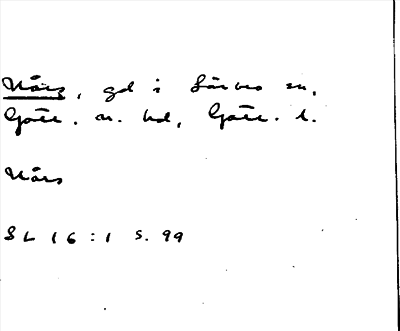 Nårs, gd i Lärbro sn,
Gotl. n. hd, Gotl. l.
Nårs
SL 16:1 s. 99